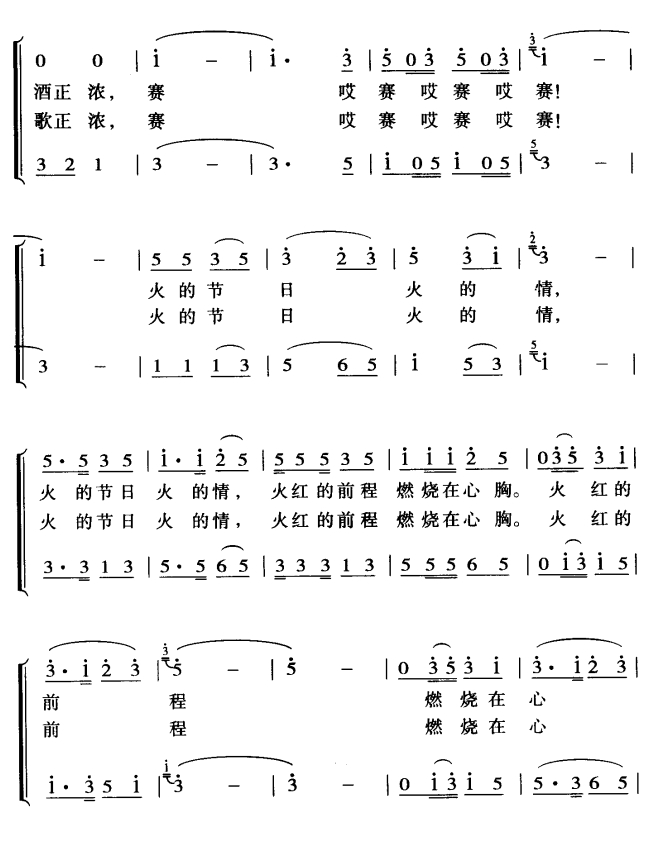 3
0 0 | i – | i· 3 | 5 03 5 03 | i – |
酒正 浓, 赛 哎 赛 哎 赛 哎 赛!
歌正 浓, 赛 哎 赛 哎 赛 哎 赛!
5
3 2 1 | 3 – | 3· 5 | i 05 i 05 | 3 – |
2
i – | 5 5 3 5 | 3 2 3 | 5 3 i | 3· – |
火 的 节 日 火 的 情,
火 的 节 日 火 的 情,
5
3 – | 1 1 1 3 | 5 6 5 | i 5 3 | i – |
5·5 3 5 | i·i 2 5 | 5 5 5 3 5 | i i i 2 5 | 0 3 5 3 i |
火 的节日 火 的情, 火红 的前程 燃烧在心 胸。 火 红 的
火 的节日 火 的情, 火红 的前程 燃烧在心 胸。 火 红 的
3·3 1 3 | 5·5 6 5 | 3 3 3 1 3 | 5 5 5 6 5 | 0 i 3 i 5 |
3
3·i 2 3 | 5 – | 5 – | 0 3 5 3 i | 3·i 2 3 |
前 程 燃 烧 在 心
前 程 燃 烧 在 心
i
i·3 5 i | 3 – | 3 – | 0 i 3 i 5 | 5·3 6 5 |